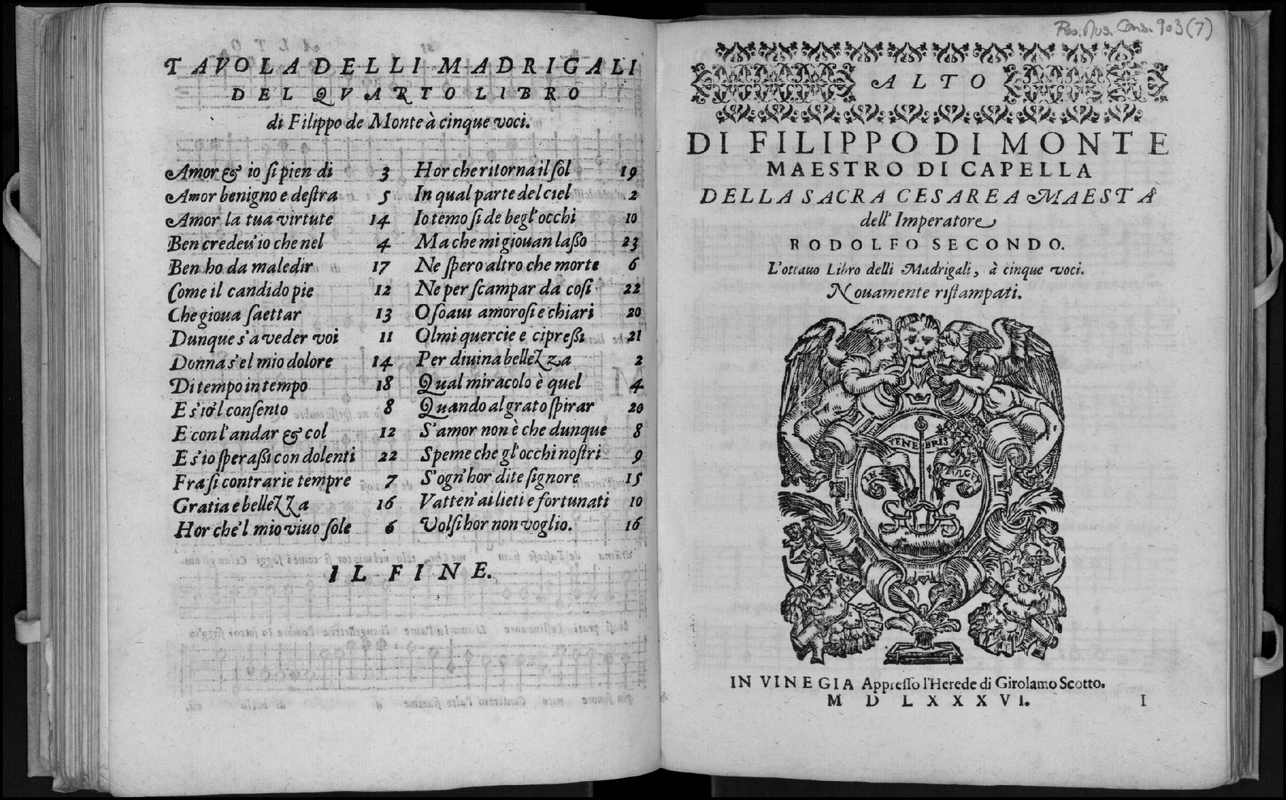 TAVOLA DELLI MADRIGALI
DEL QVARTO LIBRO
di Filippo de Monte à cinque voci.
Amor & io si pien di 3
Amor benigno e destra 5
Amor la tua virtute 14
Ben credeu'io che nel 4
Ben ho da maledir 17
Come il candido pie 12
Che gioua saettar 13
Dunque s'a veder voi 11
Donna s'el mio dolore 14
Di tempo in tempo 18
E s'io'l consento 8
E con l'andar & col 12
E s'io sperassi con dolenti 22
Fra si contrarie tempre 7
Gratia e bellezza 16
Hor che'l mio viuo sole 6
Hor che ritorna il sol 19
In qual parte del ciel 2
Io temo si de begl'occhi 10
Ma che mi giouan lasso 23
Ne spero altro che morte 6
Ne per scampar da cosi 22
O soaui amorosi e chiari 20
Olmi quercie e cipressi 21
Per diuina bellezza 2
Qual miracolo è quel 4
Quando al grato spirar 20
S'amor non è che dunque 8
Speme che gl'occhi nostri 9
S'ogn'hor dite signore 15
Vatten'ai lieti e fortunati 10
Volsi hor non voglio. 16
IL FINE.
903(7)
ALTO
DI FILIPPO DI MONTE
MAESTRO DI CAPELLA
DELLA SACRA CESAREA MAESTA
dell'Imperatore
RODOLFO SECONDO.
L'ottauo Libro delli Madrigali, à cinque voci.
Nouamente ristampati.
IN VINEGIA Appresso l'Herede di Girolamo Scotto.
MDLXXXVI. I